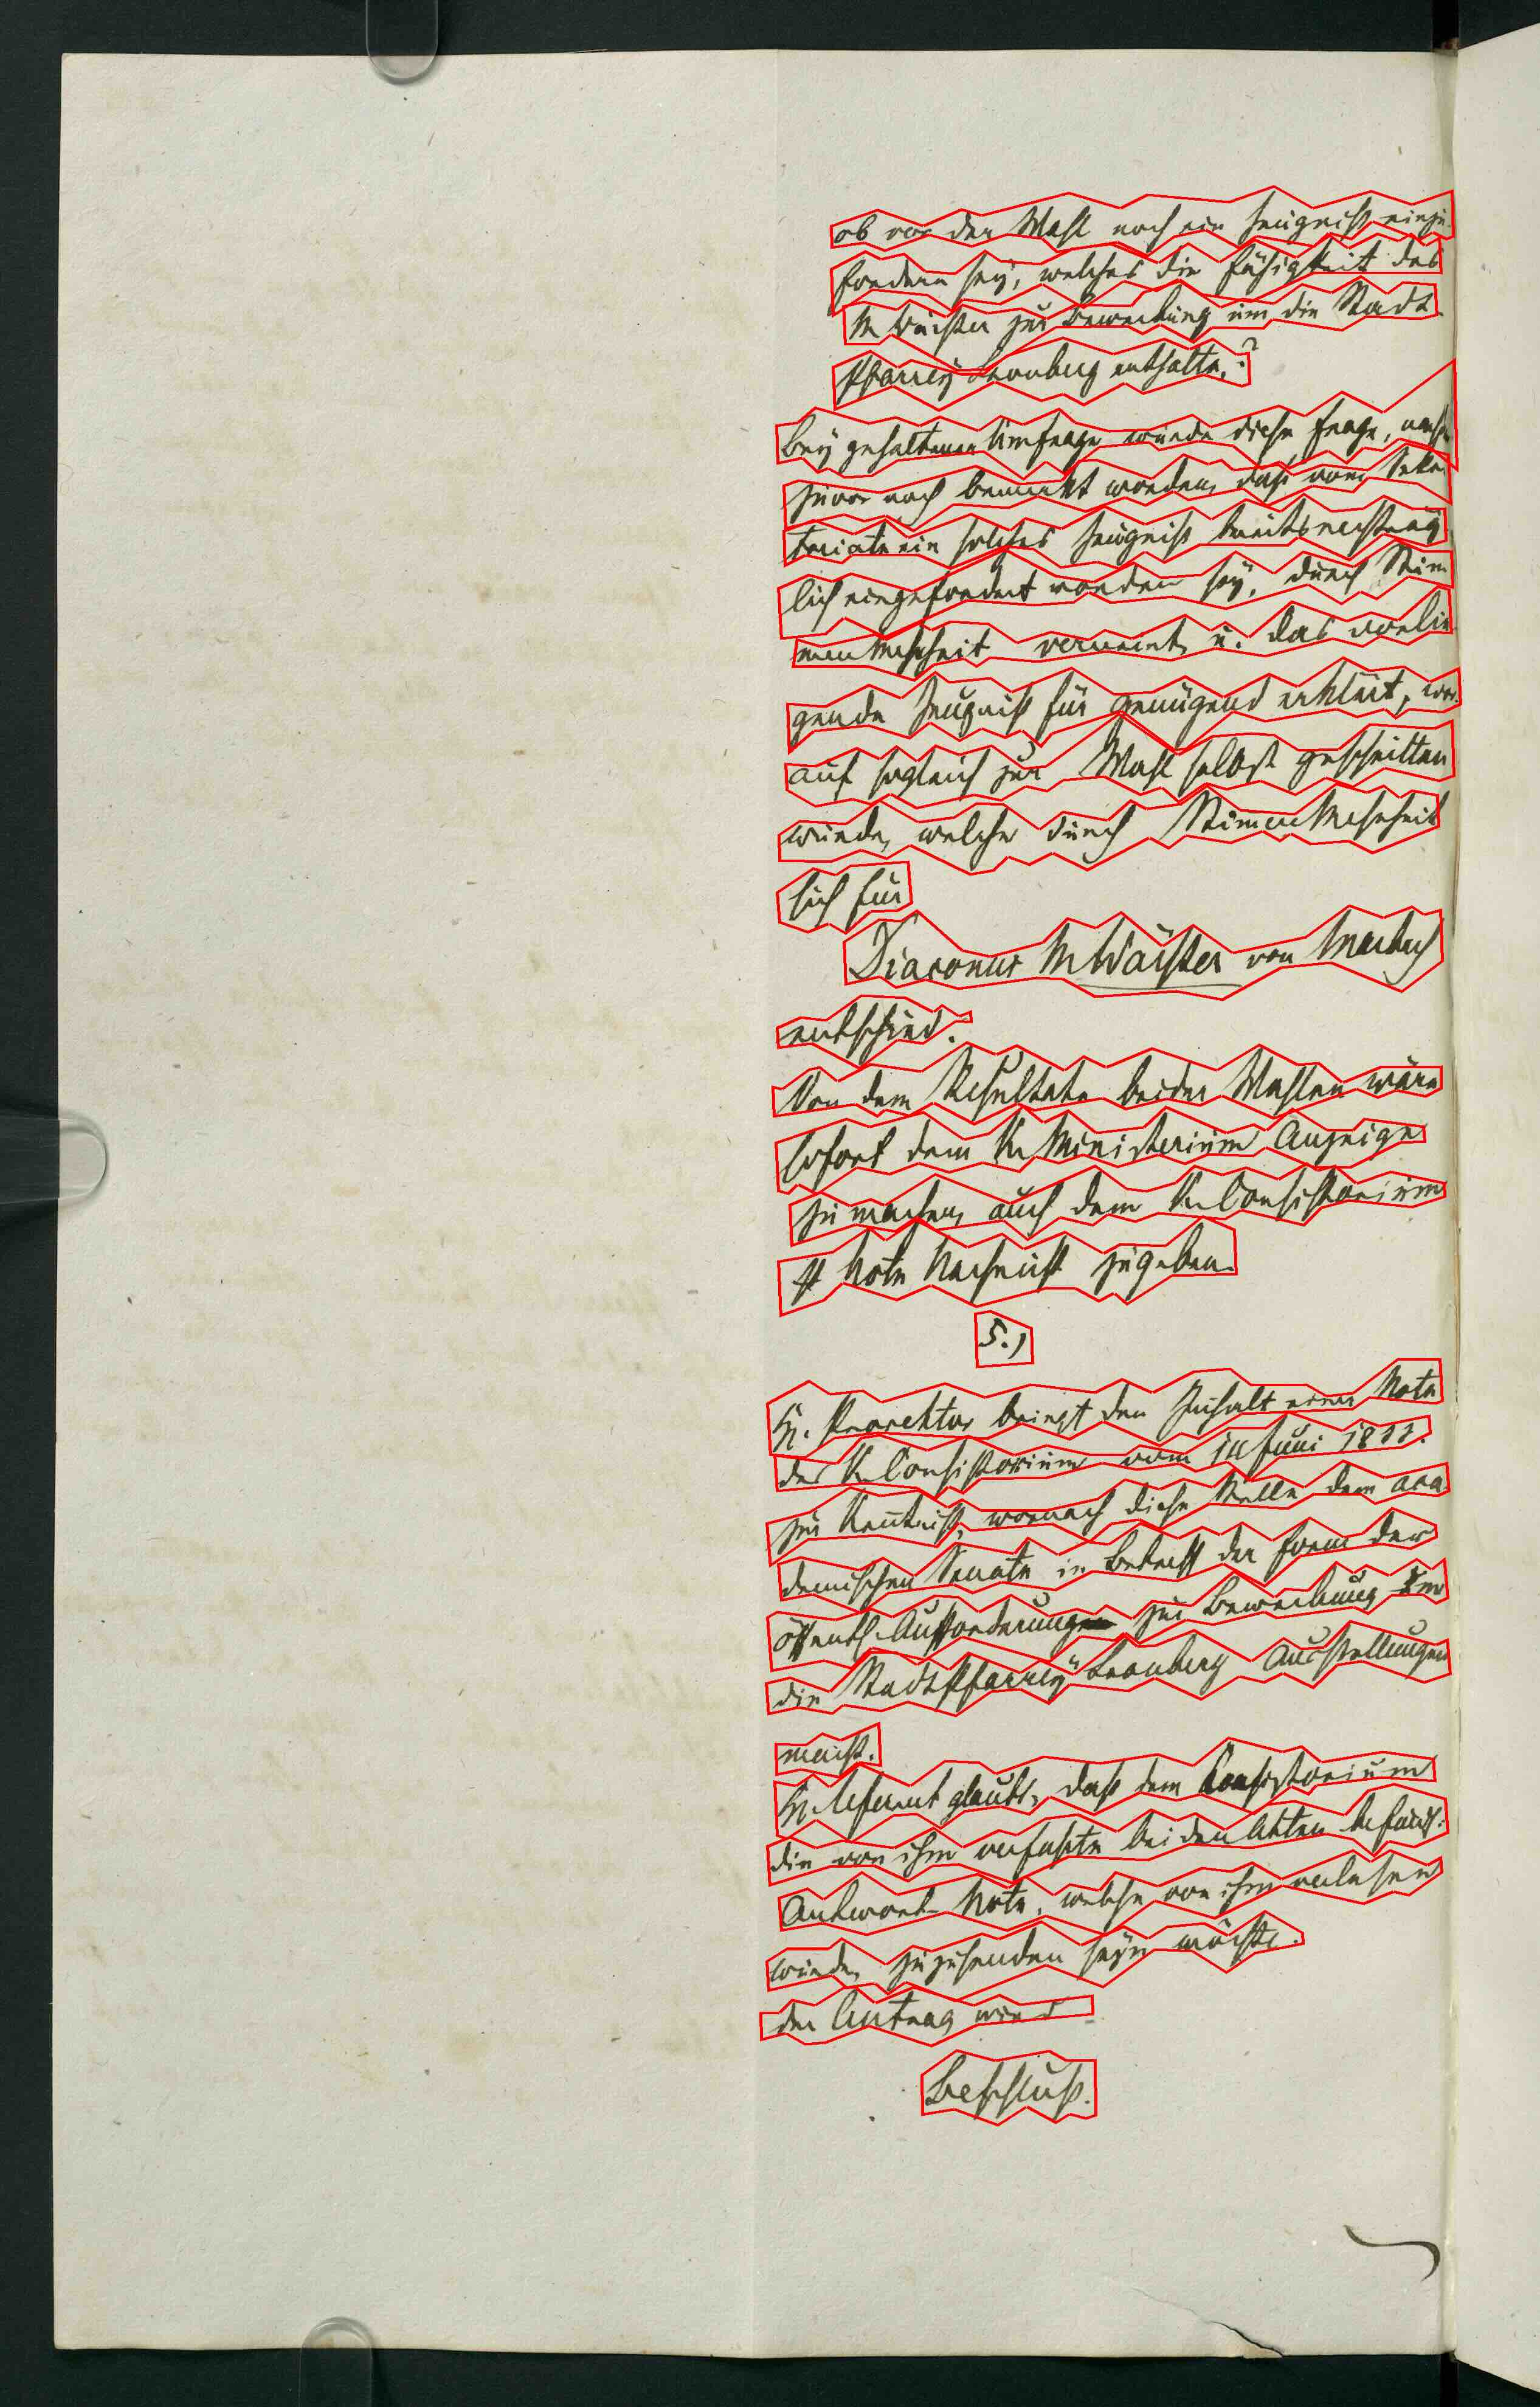 ob vor der Wahl noch ein Zeugniß einzu
fordern sey, welches die Fähigkeit des
M. Wächter zur Bewerbung um die Stadt
Pfarrey Leonberg enthalte,?
Bey gehaltener Umfrage wurde diese Frage, nach
zuvor noch bemerkt worden, daß vom Sekre
tariate ein solches Zeugniß bereits nachträg
lich eingefordert worden sey, durch Stim
men Mehrheit verneint, u. das vorlie
gende Zeugniß für genügend erklärt, wor
auf sogleich zur Wahl selbst geschritten
wurde, welche durch Stimmen Mehrheit
sich für
Diaconus M. Wächter von Marbach
entschied.
Von dem Resultate beider Wahlen wäre
sofort dem K. Ministerium Anzeige
zu machen, auch dem K. Consistorium
Note Nachricht zu geben.
5.)
H. Prorektor bringt den Inhalt einer Note
des K. Consistorium vom Juni 1833.
zur Kenntniß, wornach diese Stelle dem aca
demischen Senate in Betreff der Form der
öffentl. Aufforderung zur Bewerbung um
die Stadt Pfarrey Leonberg Ausstellungen
macht.
H. Referent glaubt, daß dem Consistorium
die von ihm verfaßte bei den Akten befindl.
Antwort-Note, welche von ihm verlesen
wurde, zuzusenden seyn möchte.
der Antrag wird
Beschluß.